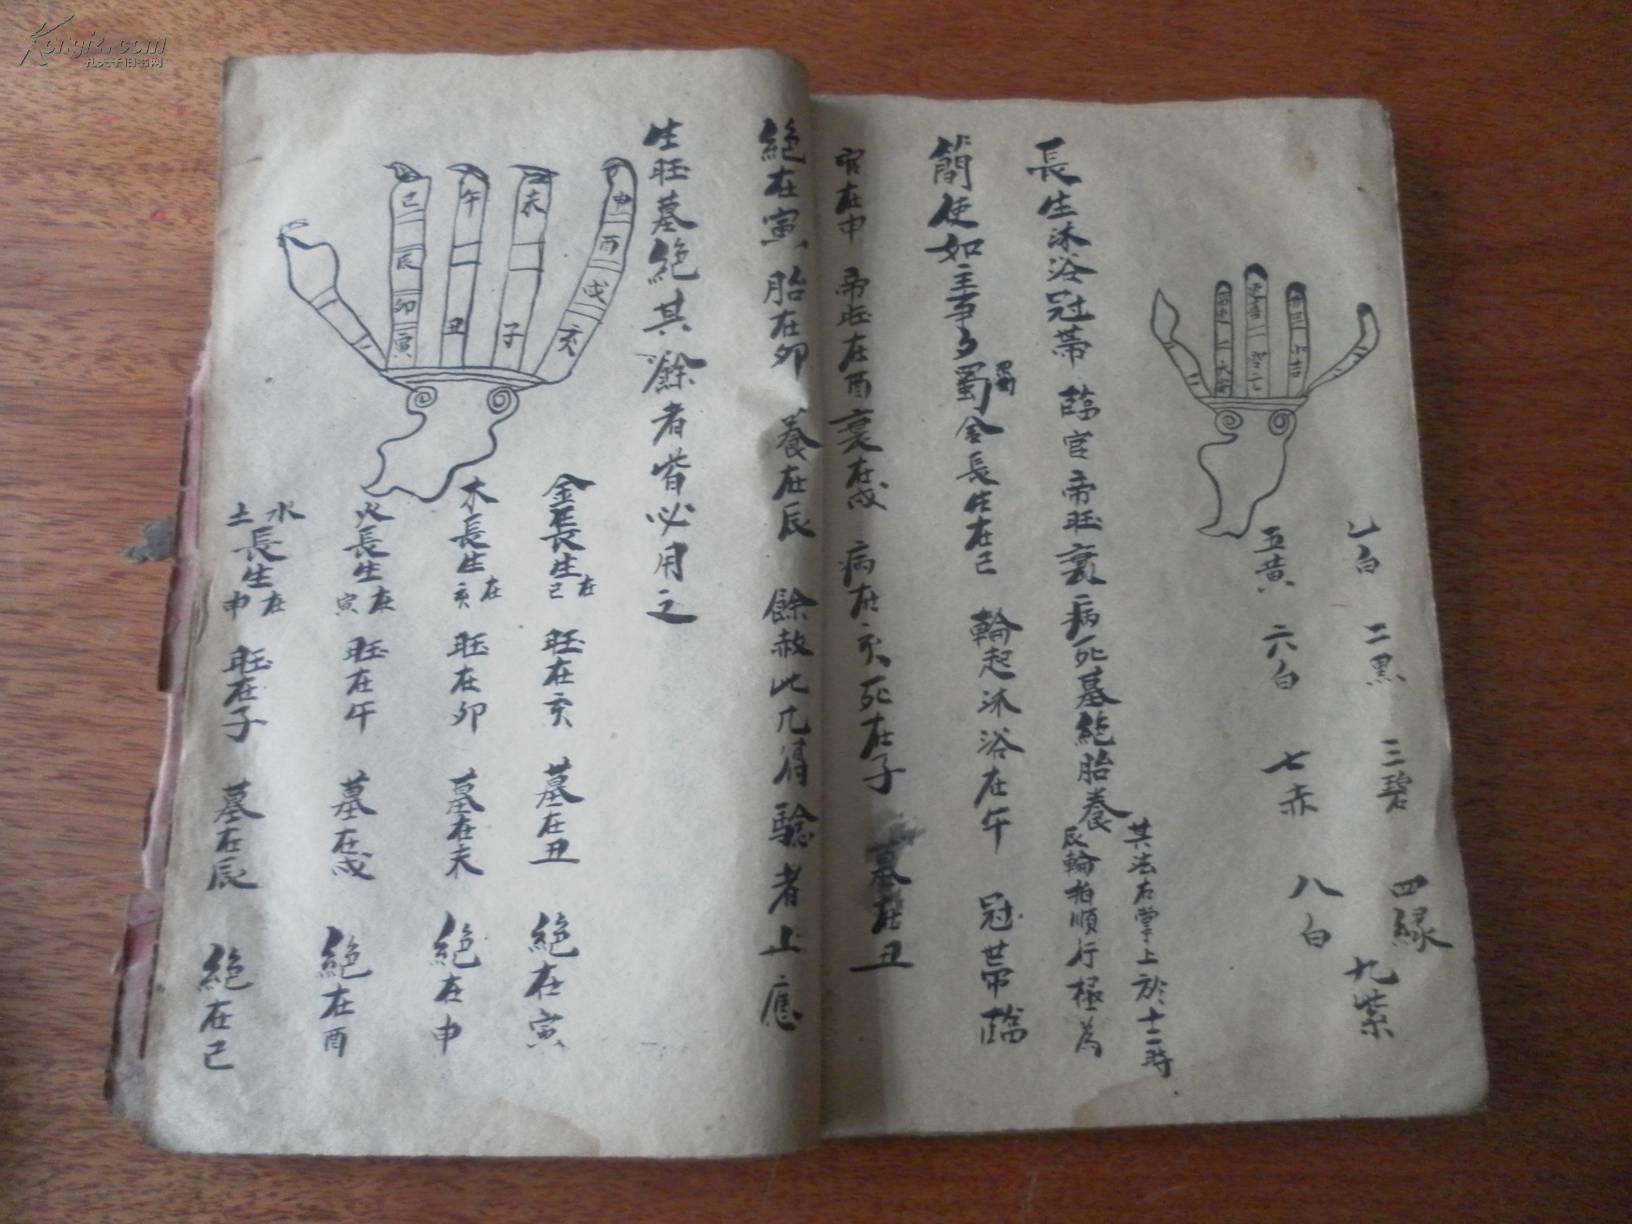 一白 二黑 三碧 四緑
五黄 六白 七赤 八白 九紫
長生沐浴冠帶 臨官帝旺衰病死墓絶胎養
其法右掌上於十二時
辰輪指順行極為
簡使如主事多蜀金長生在己 輪起沐浴在午 冠帶臨
官在申 帝旺在酉衰在戌 病在亥死在子 墓在丑
絶在寅 胎在卯 養在辰 餘赦此凡得驗者止應
生旺墓絶其餘者皆必用之
己 午 未 申
辰 酉
卯 戌
寅 丑 子 亥
金長生在己 旺在亥 墓在丑 絶在寅
木長生在亥 旺在卯 墓在未 絶在申
火長生在寅 旺在午 墓在戌 絶在酉
水土長生在申 旺在子 墓在辰 絶在己
Kongfz.com
孔夫子旧书网